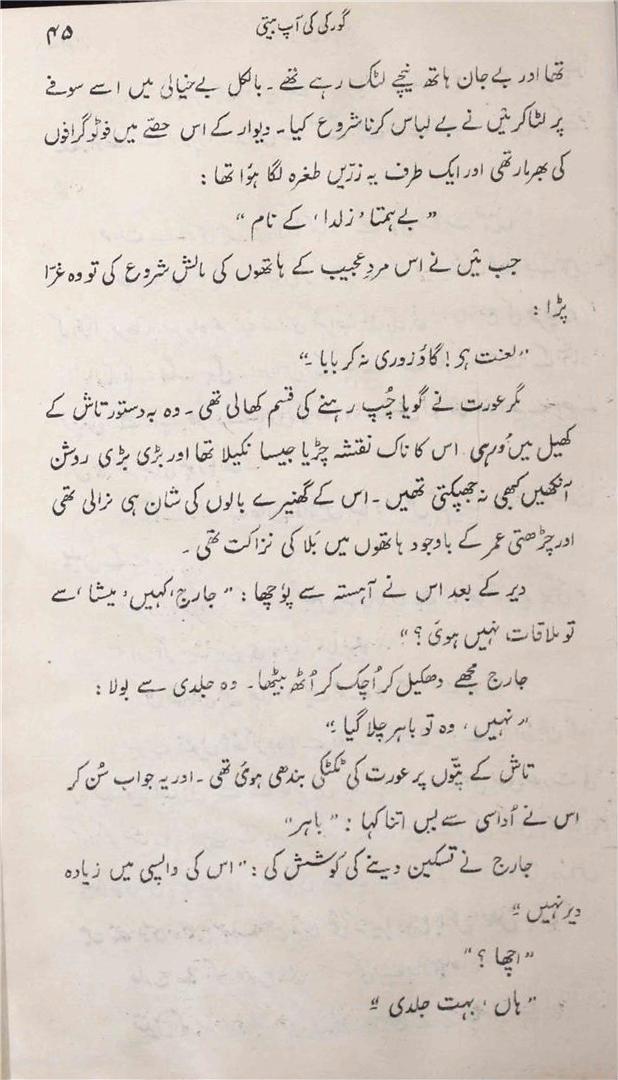 گورکی کی آپ بیتی
۴۵
تھا اور بے جان ہاتھ نیچے لٹک رہے تھے۔ بالکل بے خیالی میں اسے صوفے
پر لٹا کر میں نے بے لباس کرنا شروع کیا۔ دیوار کے اس حصّے میں فوٹوگرافوں
کی بھرمار تھی اور ایک طرف یہ زرّیں طغرہ لگا ہؤا تھا :
”بے ہمتا ’زلدا‘ کے نام“
جب میں نے اس مردِ عجیب کے ہاتھوں کی مالش شروع کی تو وہ غرّا
پڑا :
”لعنت ہی! گاؤ زوری نہ کر بابا۔“
مگر عورت نے گویا چُپ رہنے کی قسم کھالی تھی۔ وہ بہ دستور تاش کے
کھیل میں اس کا ناک نقشہ چڑیا جیسا نکیلا تھا اور بڑی بڑی روشن
آنکھیں کبھی نہ جھپکتی تھیں۔ اس کے گھنیرے بالوں کی شان ہی نرالی تھی
اور چڑھتی عمر کے باوجود ہاتھوں میں بَلا کی نزاکت تھی۔
دیر کے بعد اس نے آہستہ سے پوچھا : ”جارج، کہیں ’میشا‘ سے
تو ملاقات نہیں ہوئی؟“
جارج مجھے دھکیل کر اُچک کر اُٹھ بیٹھا۔ وہ جلدی سے بولا :
”نہیں، وہ تو باہر چلا گیا۔“
تاش کے پتّوں پر عورت کی ٹکٹکی بندھی ہوئی تھی۔ اور یہ جواب سُن کر
اس نے اُداسی سے بس اتنا کہا : ”باہر“
جارج نے تسکین دینے کی کوشش کی : ”اس کی واپسی میں زیادہ
دیر نہیں۔“
”اچھا؟“
”ہاں، بہت جلدی۔“